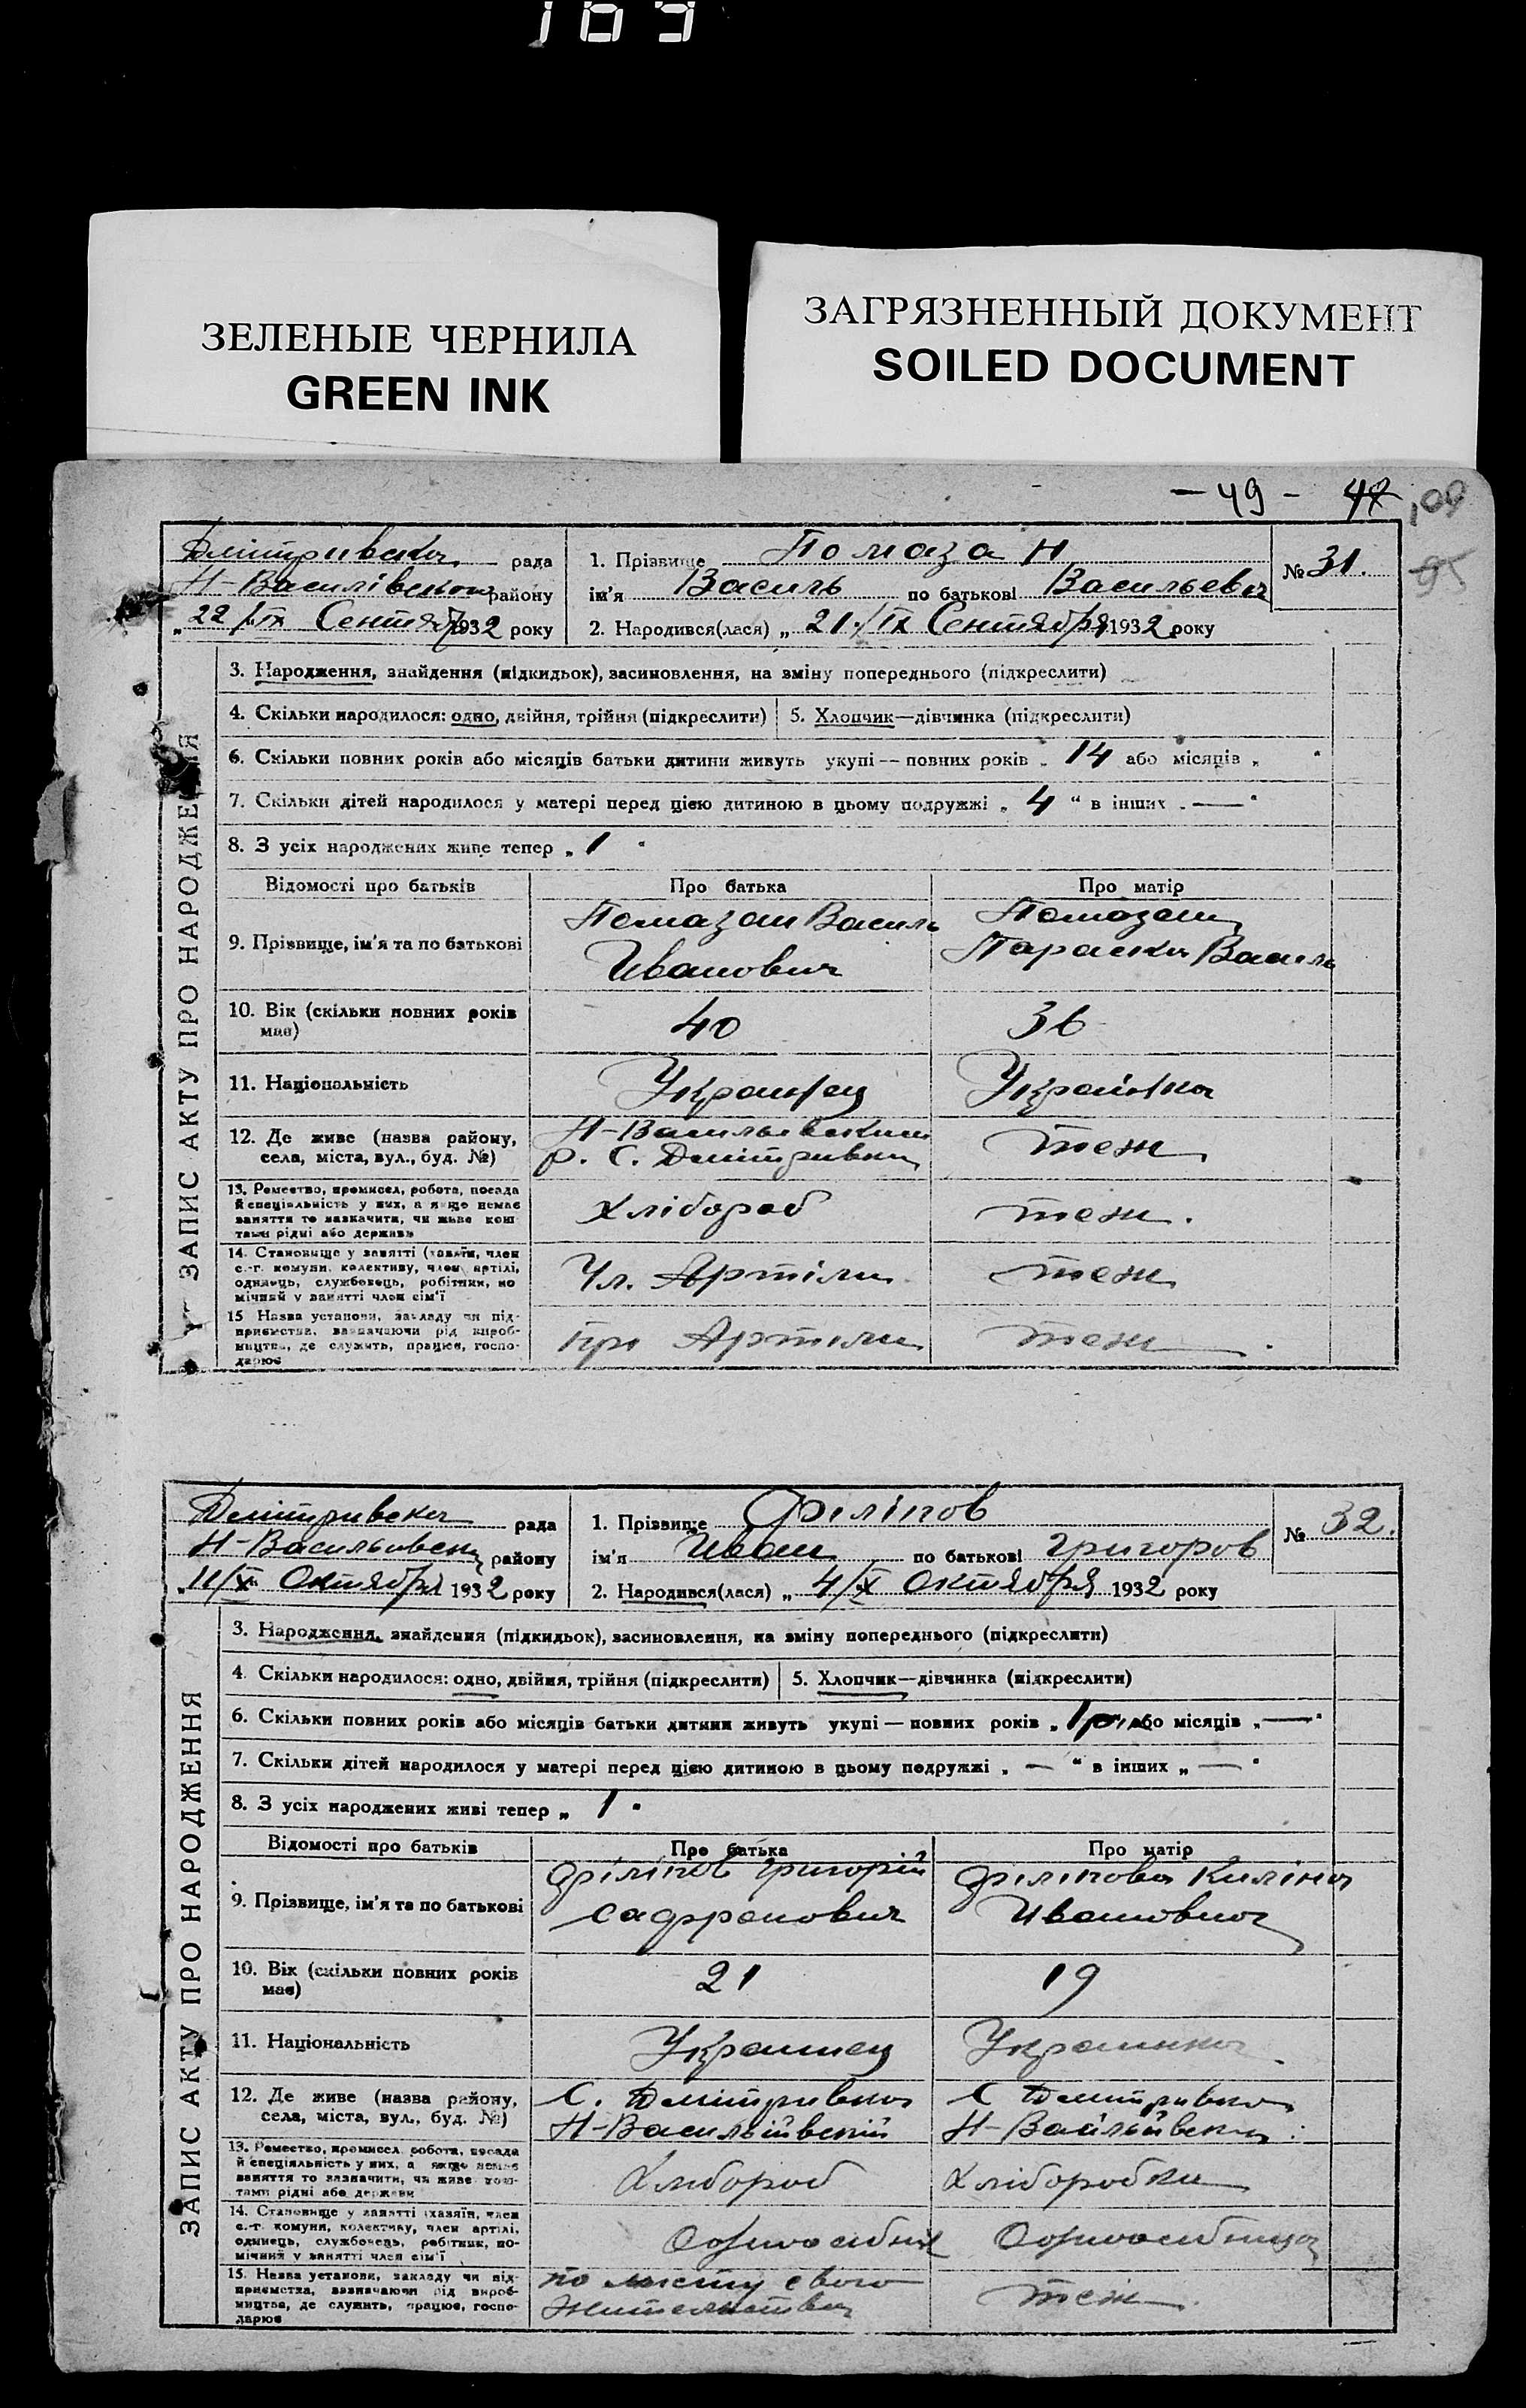 169
ЗЕЛЕНЫЕ ЧЕРНИЛА
GREEN INK
ЗАГРЯЗНЕННЫЙ ДОКУМЕНТ
SOILED DOCUMENT
- 49 - 47 109
95
Дмітривська рада
Н-Василівського району
„ 22/IX Сентября 1932 року
1. Прізвище Помазан
ім'я Василь по батькові Васильевич
№ 31.
2. Народився(лася) „ 21/IX Сентября 1932 року
ЗАПИС АКТУ ПРО НАРОДЖЕННЯ
3. Народження, знайдення (підкидьок), засиновлення, на зміну попереднього (підкреслити)
4. Скільки народилося: одно, двійня, трійня (підкреслити) 5. Хлопчик—дівчинка (підкреслити)
6. Скільки повних років або місяців батьки дитини живуть укупі — повних років „ 14 або місяців „ "
7. Скільки дітей народилося у матері перед цією дитиною в цьому подружжі „ 4 “ в інших „ — "
8. З усіх народжених живе тепер „ 1 "
Відомості про батьків Про батька Про матір
9. Прізвище, ім'я та по батькові
Помазан Василь
Иванович
Помазан
Параска Василь
10. Вік (скільки повних років має)
40 36
11. Національність
Украінец Украінка
12. Де живе (назва району, села, міста, вул., буд. №)
Н-Васильевский
р. С. Дмітривка
теж
13. Ремество, промисел, робота, посада
й спеціяльність у них, а якщо немає
заняття то зазначити, чи живе кош-
тами рідні або держави
Хлібороб теж.
14. Становище у занятті (хазяїн, член
с.-г. комуни, колективу, член артілі,
одинець, службовець, робітник, по-
мічний у занятті член сім'ї
Чл. Артіли теж
15. Назва установи, закладу чи під-
приємства, зазначаючи рід вироб-
ництва, де служить, працює, госпо-
дарює
при Артіли теж.
Дмітривска рада
Н-Васильовск району
„ 11/X Октября 1932 року
1. Прізвище Філіпов
ім'я Иван по батькові Григоров
№ 32.
2. Народився(лася) „ 4/X Октября 1932 року
ЗАПИС АКТУ ПРО НАРОДЖЕННЯ
3. Народження, знайдення (підкидьок), засиновлення, на зміну попереднього (підкреслити)
4. Скільки народилося: одно, двійня, трійня (підкреслити) 5. Хлопчик—дівчинка (підкреслити)
6. Скільки повних років або місяців батьки дитини живуть укупі — повних років „ 1 або місяців „ — "
7. Скільки дітей народилося у матері перед цією дитиною в цьому подружжі „ — “ в інших „ — "
8. З усіх народжених живі тепер „ 1 "
Відомості про батьків Про батька Про матір
9. Прізвище, ім'я та по батькові
Філіпов Григорій
Сафронович
Філіпова Килина
Ивановна
10. Вік (скільки повних років має)
21 19
11. Національність
Украинец Украинка
12. Де живе (назва району, села, міста, вул., буд. №)
С. Дмітривка
Н-Васильівский
С Дмитривка
Н-Васильівски
13. Ремество, промисел, робота, посада
й спеціяльність у них, а якщо немає
заняття то зазначити, чи живе кош-
тами рідні або держави
Хлібороб Хлібороbка
14. Становище у занятті (хазяїн, член
с.-г. комуни, колективу, член артілі,
одинець, службовець, робітник, по-
мічний у занятті член сім'ї
Одноосібник Одноосібница
15. Назва установи, закладу чи під-
приємства, зазначаючи рід вироб-
ництва, де служить, працює, госпо-
дарює
по месту свого
жительства
теж